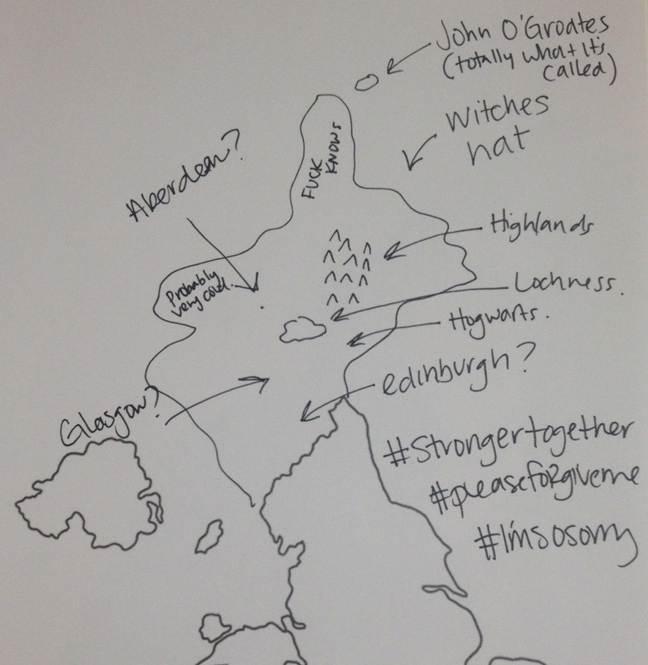 John O'Groates
(totally what it's
called)
Witches
hat
FUCK
KNOWS
Aberdeen?
Highlands
Probably
very cold.
Lochness.
Hogwarts.
edinburgh?
Glasgow?
#Strongertogether
#pleaseforgiveme
#I'msosorry